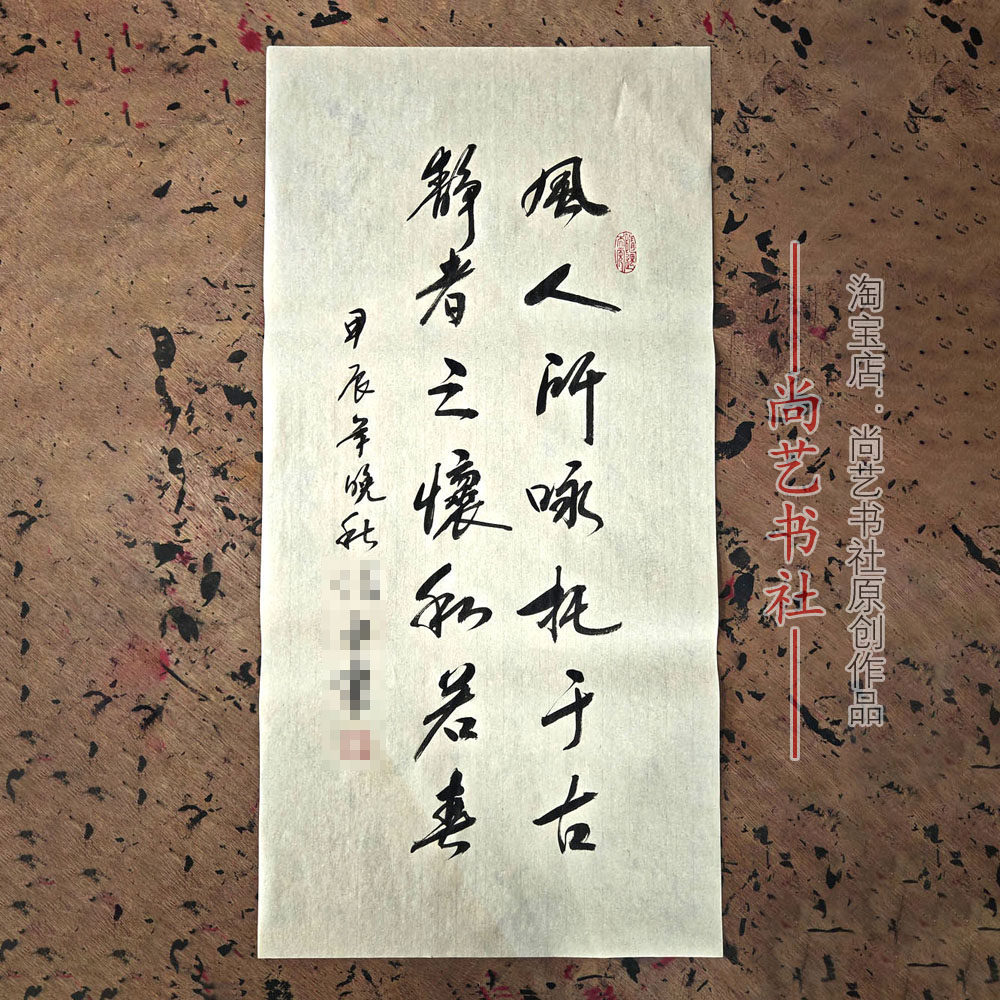 風人所咏托于古
靜者之懷和若春
甲辰年晚秋
尚艺书社
淘宝店：尚艺书社原创作品